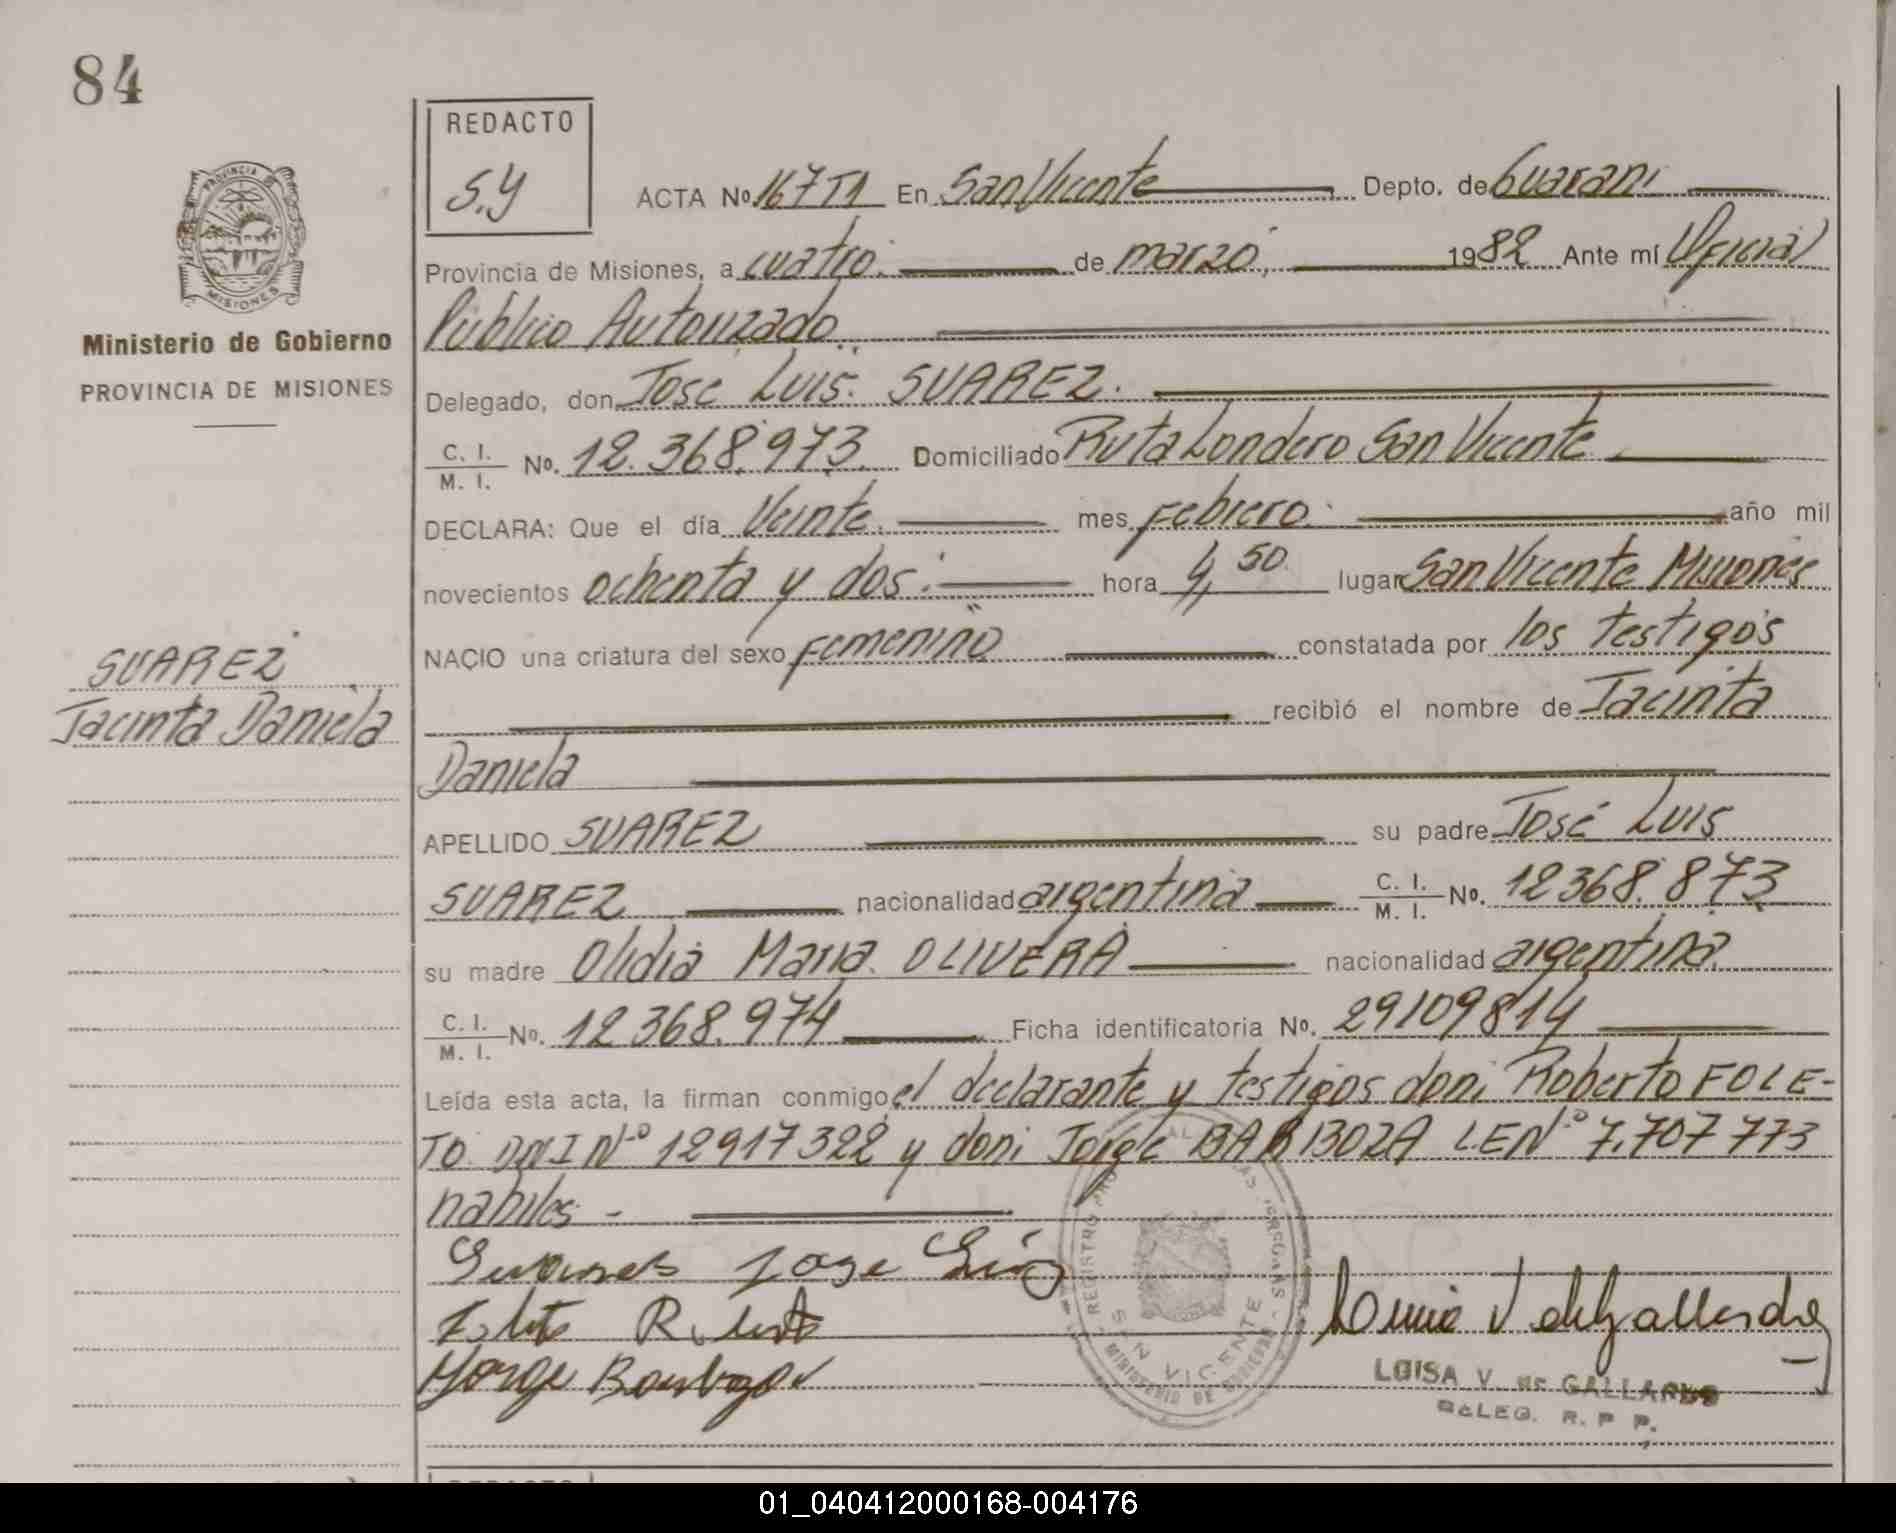 84
REDACTO
S.Y
ACTA No. 167 T1 En San Vicente Depto. de Guarani
Provincia de Misiones, a cuatro. de marzo, 1982 Ante mí Oficial
Público Autorizado.
Delegado, don Jose Luis. SUAREZ.
C. I. / M. I. No. 12.368.973. Domiciliado Ruta Londero San Vicente
DECLARA: Que el día Veinte. mes Febrero. año mil
novecientos ochenta y dos: hora 4,50 lugar San Vicente Misiones
NACIO una criatura del sexo femenino constatada por los testigos
recibió el nombre de Jacinta
Daniela
APELLIDO SUAREZ su padre José Luis
SUAREZ nacionalidad argentina C. I. / M. I. No. 12368.873
su madre Olidia Maria. OLIVERA nacionalidad argentina
C. I. / M. I. No. 12368.974 Ficha identificatoria No. 29109814
Leída esta acta, la firman conmigo el declarante y testigos don: Roberto FOLE-
TO DNI Nº 12917322 y don: Jorge BARBOZA L.E Nº 7.707773
habiles -
Jose Luis
Jorge Barboza
LUISA V. de GALLARDO
DELEG. R. P. P.
REGISTRO
SAN VICENTE
MINISTERIO DE GOBIERNO
PROVINCIA DE
MISIONES
Ministerio de Gobierno
PROVINCIA DE MISIONES
SUAREZ
Jacinta Daniela
REDACTO
01_040412000168-004176